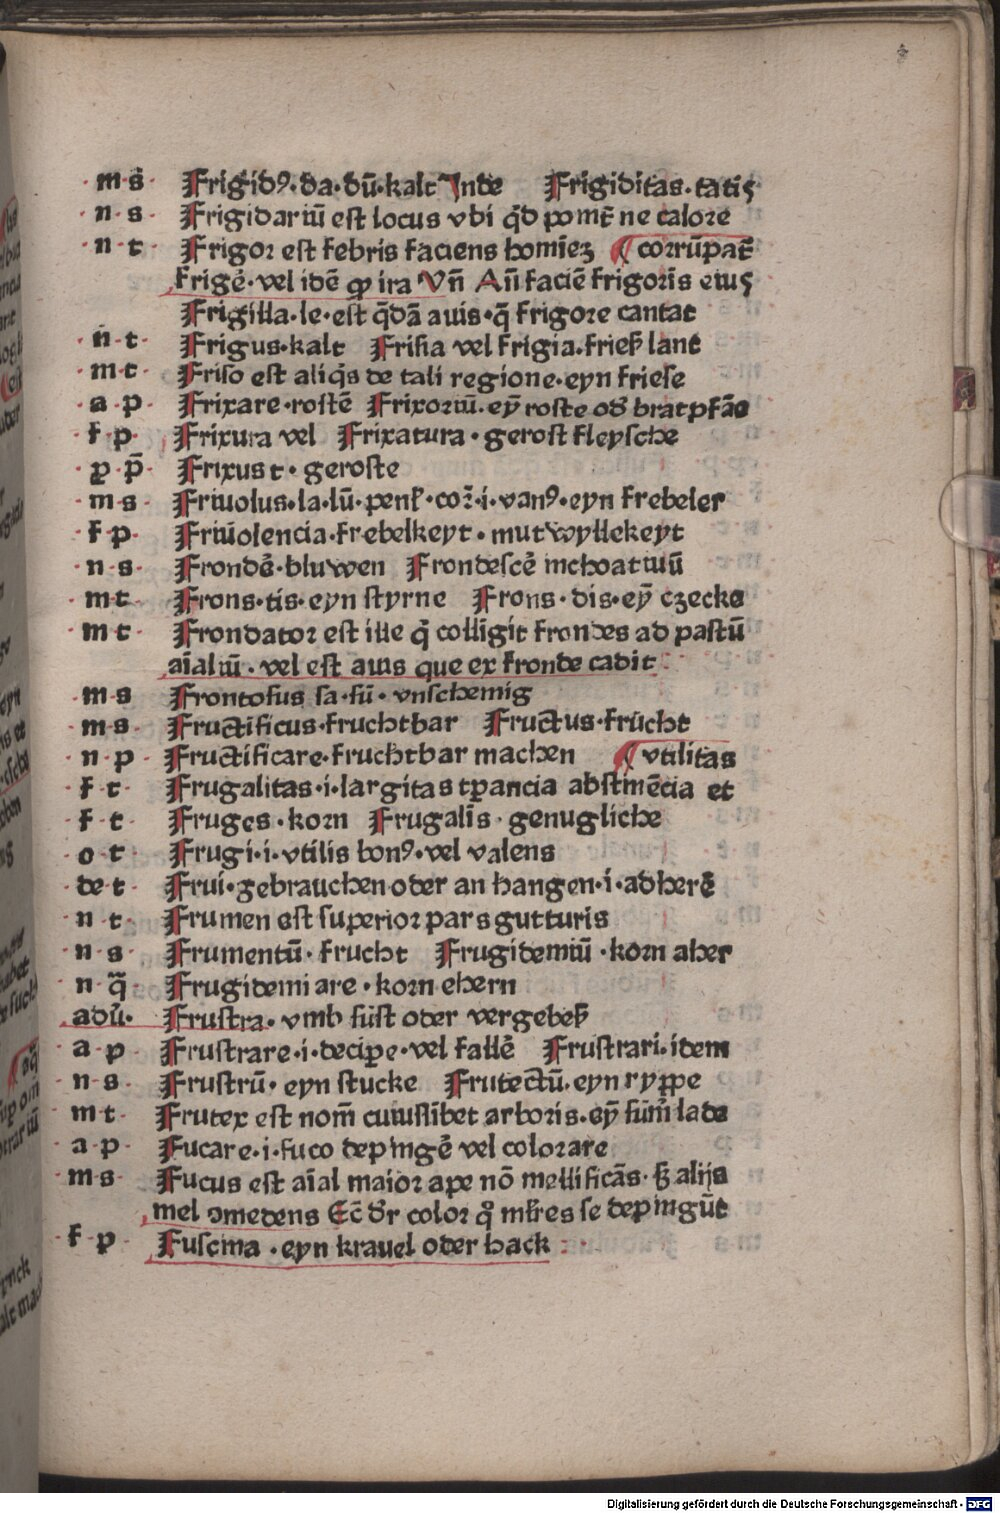 m·s· Frigidꝰ·da·dū·kalt Inde Frigiditas·tatis
n·s· Frigidariū est locus vbi qͥd pomt̄ ne calore
n·t· Frigor est febris faciens homīeꝫ ¶ corrūpat̄
frigē·vel idē qp ira Vn̄ An̄ faciē frigoris eius
Frigilla·le·est q̄dā auis·q̄ frigore cantat
n·t· Frigus·kalt Frisia vel frigia·frieß lant
m·t· Friso est aliqͥs de tali regione·eyn friese
a·p· Frixare·rostē Frixoriū·eȳ roste odˀ bratpfāe
f·p· Frixura vel Frixatura·gerost fleysche
p·p̄· Frixus t·geroste
m·s· Friuolus·la·lū·penl̕·cor̄·i·vanꝰ·eyn frebeler
f·p· Friuolencia·frebelkeyt·mutwyllekeyt
n·s· Frondē·bluwen Frondescē inchoatiuū
m·t· Frons·tis·eyn styrne Frons·dis·eȳ czecke
m·t· Frondator est ille qͥ colligit frondes ad pastū
aīaliū·vel est auis que ex fronde cadit
m·s Frontosus sa·sū·vnschemig
m·s· Fructificus·fruchtbar Fructus·frücht
n·p· Fructificare·fruchtbar machen ¶ vtilitas
f·t· Frugalitas·i·largitas tꝑancia abstinēcia et
f·t· Fruges·korn Frugalis·genugliche
o·t· Frugi·i·vtilis bonꝰ·vel valens
de·t· Frui·gebrauchen oder an hangen·i·adherē
n·t· Frumen est superior pars gutturis
n·s· Frumentū·frucht Frugidemiū·korn aher
n·q̄· Frugidemiare·korn ehern
adū· Frustra·vmb süst oder vergebeß
a·p· Frustrare·i·deciꝑe·vel fallē Frustrari·idem
n·s· Frustrū·eyn stucke Frutectū·eyn ryppe
m·t· Frutex est nom̄ cuiuslibet arboris·eȳ süm̄lade
a·p· Fucare·i·fuco depingē vel colorare
m·s· Fucus est aīal maior ape nō mellificās·ß alijs
mel ꝯmedens Ec̄ dˀr color qͦ mlˀres se depingūt
f·p· Fuscina·eyn krauel oder hack
Digitalisierung gefördert durch die Deutsche Forschungsgemeinschaft - DFG